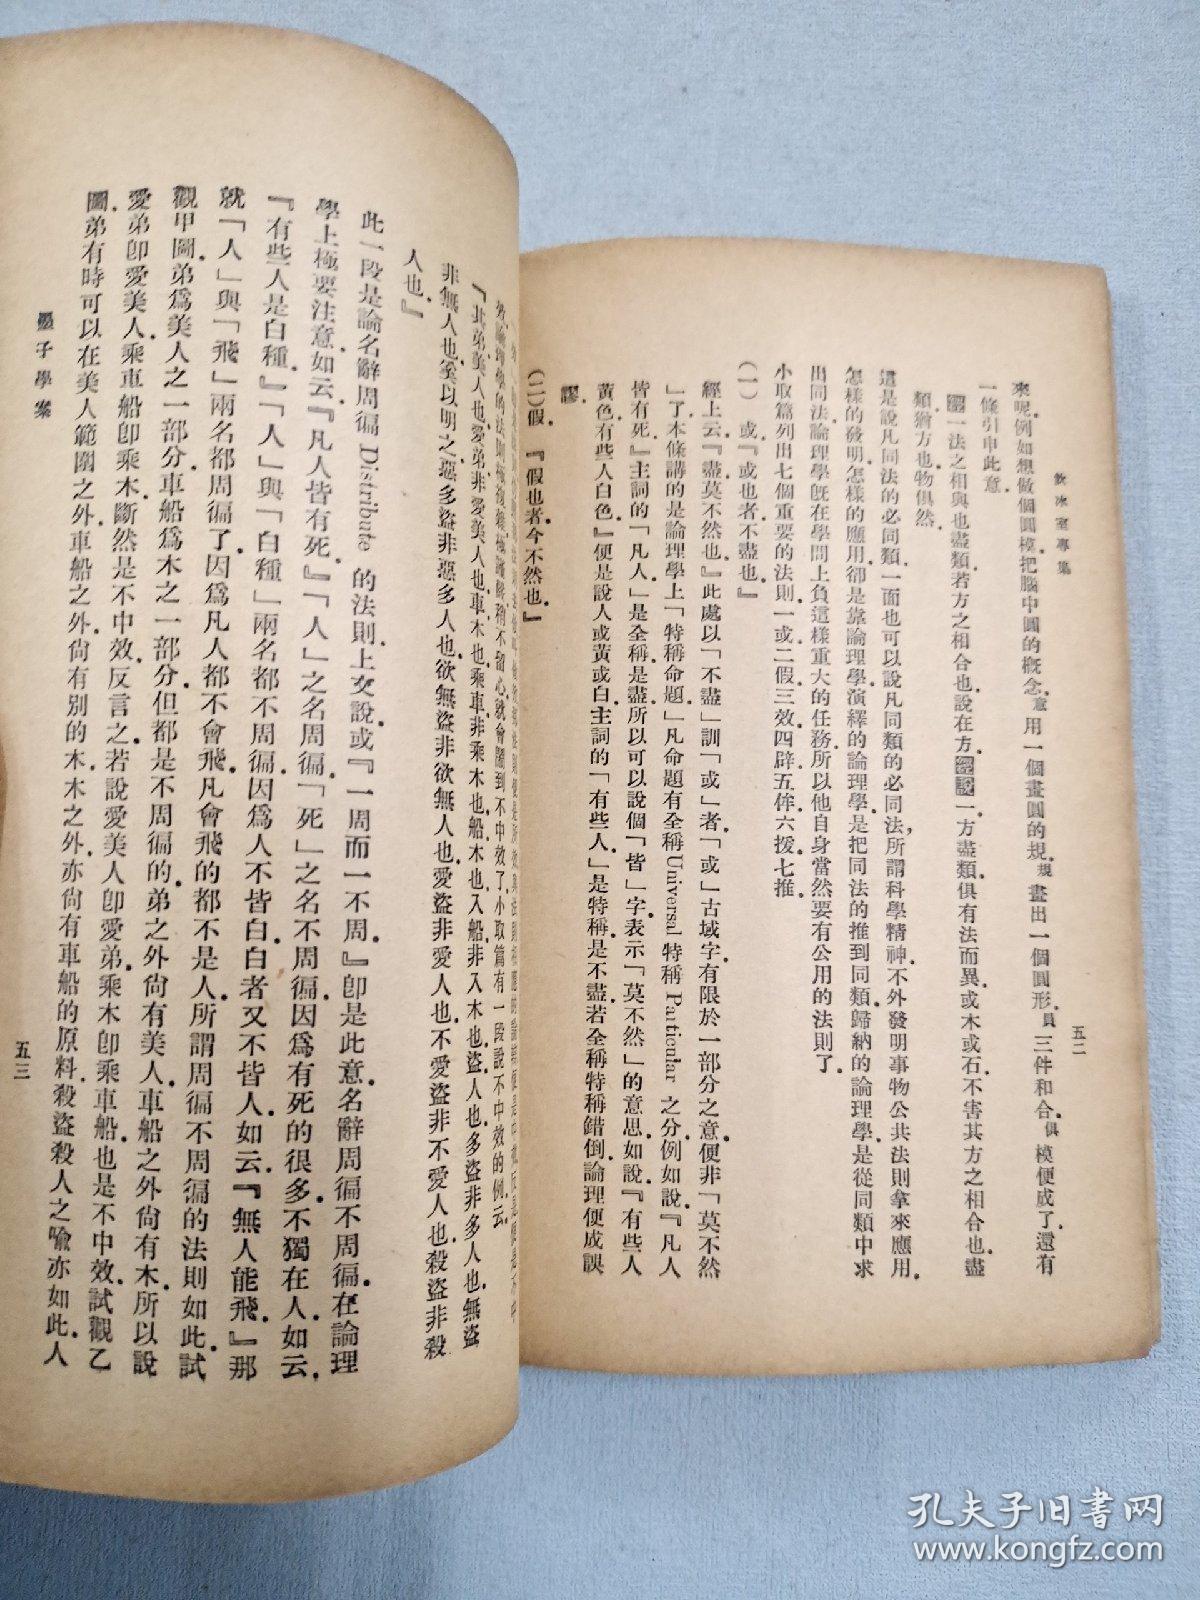 飲冰室專集
五二
來呢.例如想做個圓模.把腦中圓的概念.意用一個畫圓的規.規畫出一個圓形.員三件和合.俱模便成了.還有
一條引申此意.
經一法之相與也盡類.若方之相合也.說在方.經說一方盡類.俱有法而異.或木或石.不害其方之相合也.盡
類猶方也.物俱然.
這是說凡同法的必同類.一面也可以說凡同類的必同法.所謂科學精神.不外發明事物公共法則拿來應用.
怎樣的發明.怎樣的應用.卻是靠論理學.演釋的論理學.是把同法的推到同類.歸納的論理學.是從同類中求
出同法.論理學旣在學問上負這樣重大的任務.所以他自身當然要有公用的法則了.
小取篇列出七個重要的法則.一或.二假.三效.四辟.五侔.六援.七推.
(一)或.『或也者不盡也.』
經上云.『盡莫不然也.』此處以「不盡」訓「或」者.「或」古域字.有限於一部分之意.便非「莫不然
」了.本條講的是論理學上「特稱命題」.凡命題有全稱Universal特稱Particular之分.例如說.『凡人
皆有死.』主詞的「凡人」是全稱.是盡.所以可以說個「皆」字.表示「莫不然」的意思.如說.『有些人
黃色.有些人白色.』便是說人或黃或白.主詞的「有些人」是特稱.是不盡.若全稱特稱錯倒.論理便成誤
謬.
(二)假.『假也者.今不然也.』
效.論理學的法則.極複雜.極幽賾.稍不留心.就會鬧到不中效了.小取篇有一段說不中效的例.云.
『其弟.美人也.愛弟.非愛美人也.車.木也.乘車.非乘木也.船.木也.入船.非入木也.盜.人也.多盜.非多人也.無盜.
非無人也.奚以明之.惡多盜.非惡多人也.欲無盜.非欲無人也.愛盜.非愛人也.不愛盜.非不愛人也.殺盜.非殺
人也.』
此一段是論名辭周徧Distribute的法則.上文說.或『一周而一不周.』卽是此意.名辭周徧不周徧.在論理
學上極要注意.如云.『凡人皆有死.』「人」之名周徧.「死」之名不周徧.因爲有死的很多.不獨在人.如云.
『有些人是白種.』「人」與「白種」兩名都不周徧.因爲人不皆白.白者又不皆人.如云.『無人能飛.』那
就「人」與「飛」兩名都周徧了.因爲凡人都不會飛.凡會飛的都不是人.所謂周徧不周徧的法則如此.試
觀甲圖.弟爲美人之一部分.車船爲木之一部分.但都是不周徧的.弟之外尙有美人.車船之外尙有木.所以說
愛弟卽愛美人.乘車船卽乘木.斷然是不中效.反言之.若說愛美人卽愛弟.乘木卽乘車船.也是不中效.試觀乙
圖.弟有時可以在美人範圍之外.車船之外.尙有別的木.木之外.亦尙有車船的原料.殺盜殺人之喩亦如此.人
墨子學案
五三
孔夫子旧书网
www.kongfz.com